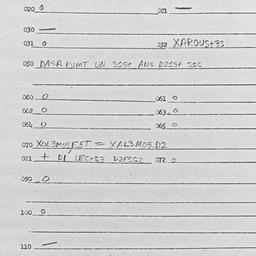 020 0 021 —
030 —
031 0 032 XAROUSt3S
050 DASR KUMT UN S1St ANS D21St S1C
060 0 061 0
062 0 063 0
064 0 065 0
070 = XAL3MOS D2
071 + D1 LECtD3 D2FSG2 072 0
090 0
100 0
110 —